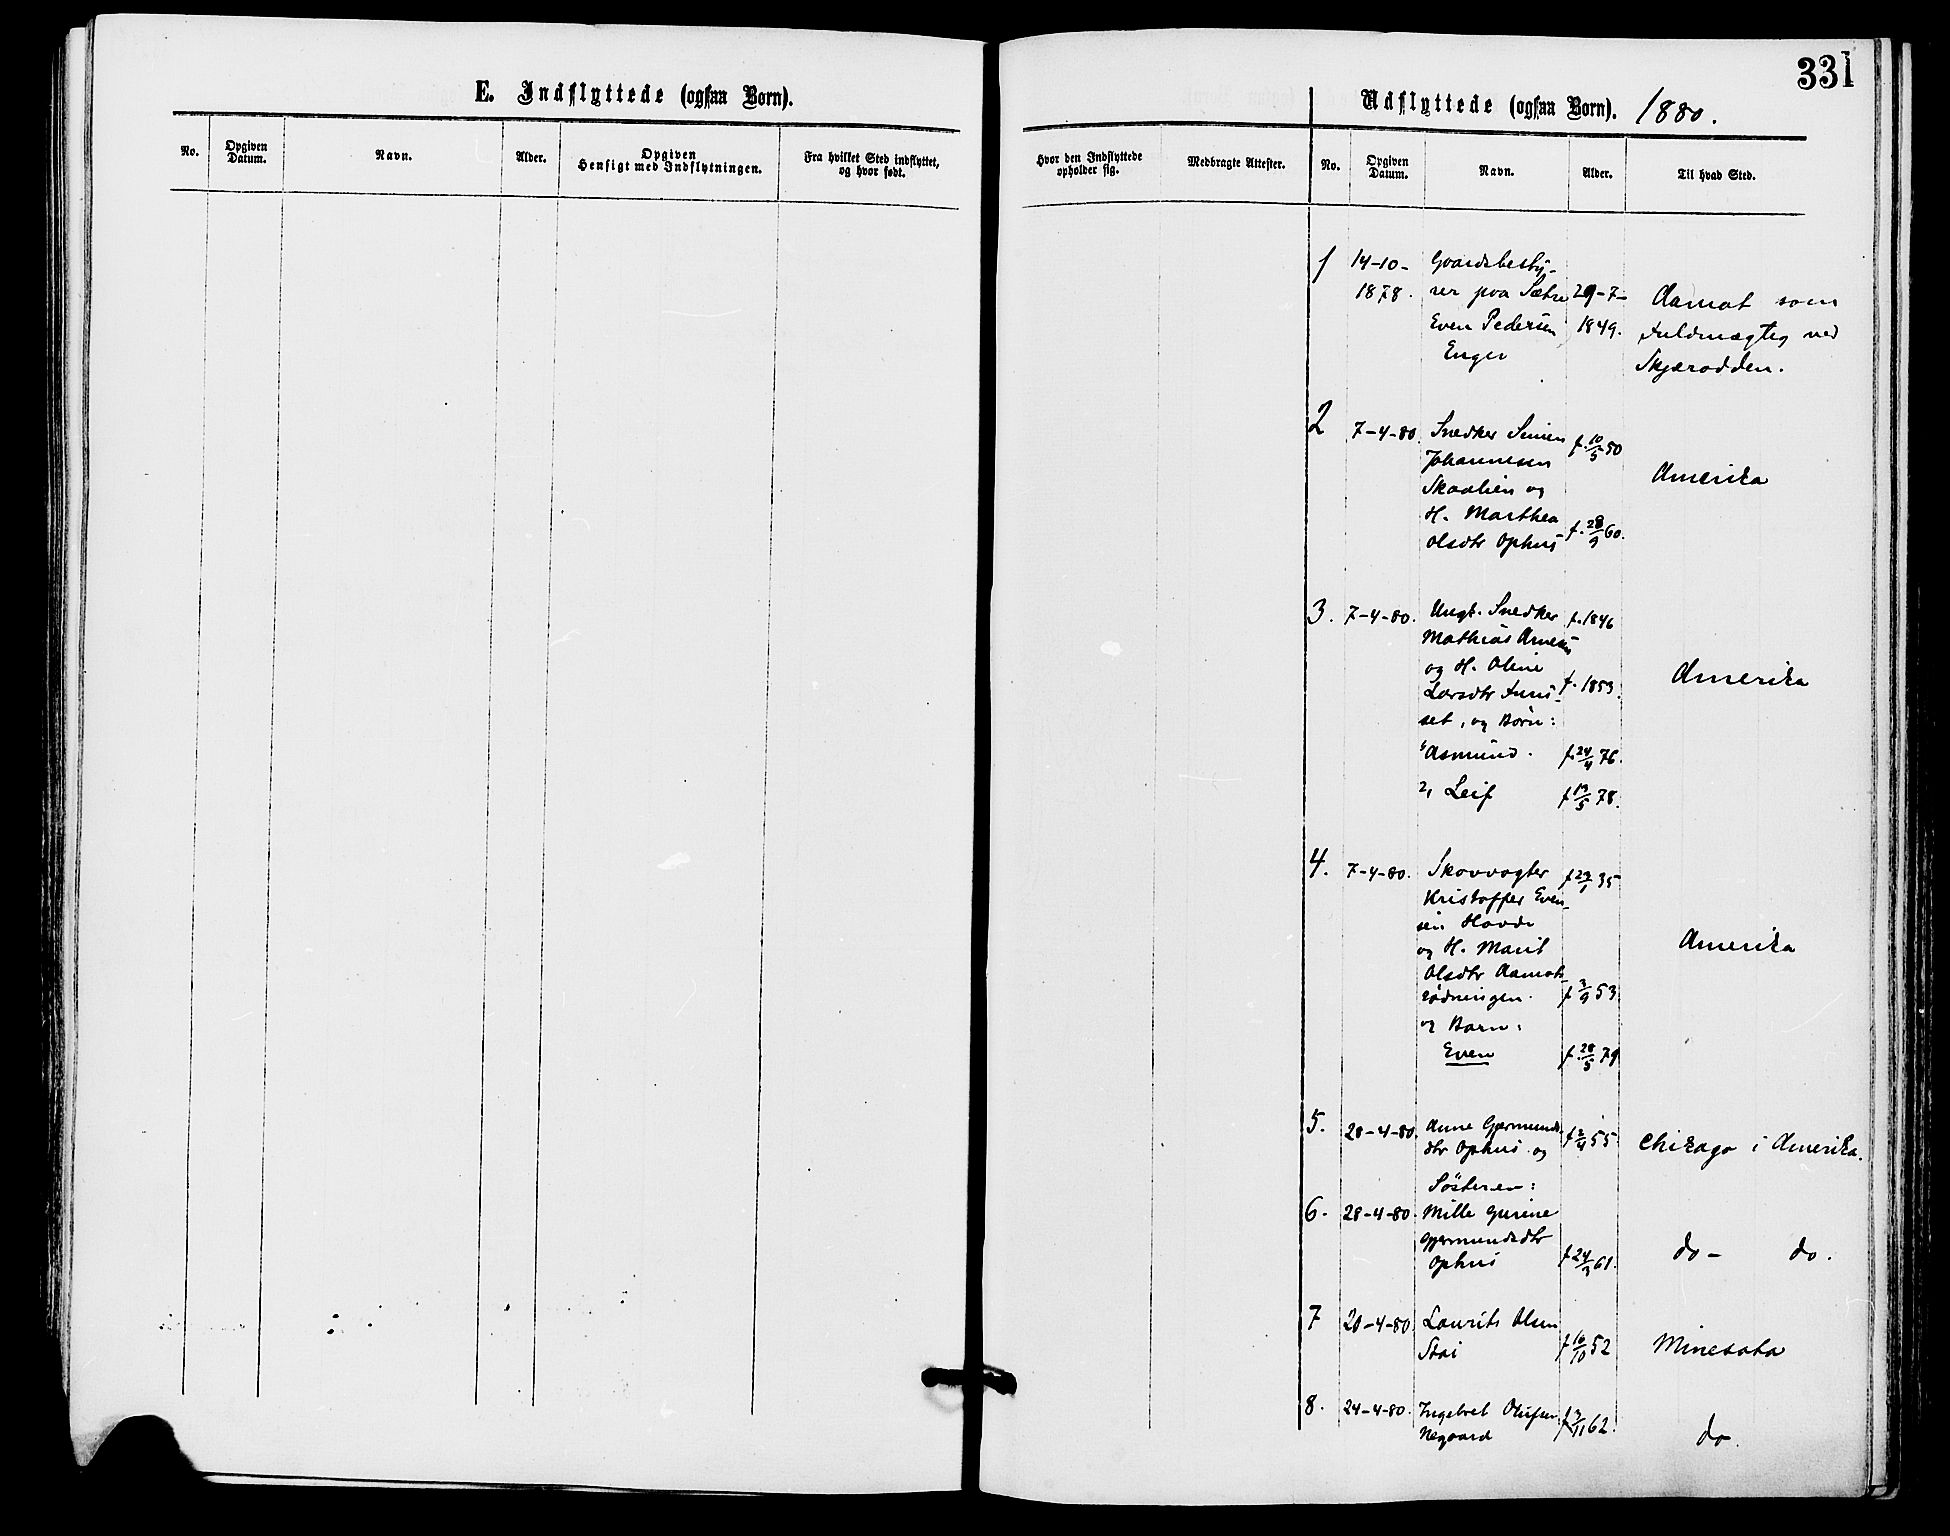 E. Indflyttede (ogsaa Børn).
No.
Opgiven
Datum.
Navn.
Alder.
Opgiven
Hensigt med Indflytningen.
Fra hvilket Sted indflyttet,
og hvor født.
331
Udflyttede (ogsaa Børn). 1880.
Hvor den Indflyttede
opholder sig.
Medbragte Attester.
No.
Opgiven
Datum.
Navn.
Alder.
Til hvad Sted.
1 14-10- Gaardsbesty-
1878. rer paa Sætre 29-7- Aamot som
Even Pedersen 1849. Fuldmægtig ved
Enger Skjærodden.
2 7-4-80. Snedker Simen f. 10/5 50
Johannesen
Skaalien og Amerika
H. Marthea f. 28/9 60.
Olsdtr Ophus
3. 7-4-80. Ungk. Snedker f. 1846
Mathias Arnesen
og H. Oline Amerika
Larsdtr Furu- f. 1853.
set, og Børn:
1, Asmund. f. 24/4 76.
2, Leif f 19/5 78.
4. 7-4-80. Skovvogter f 29/1 35
Kristoffer Even-
sen Hovde
og H. Marit Amerika
Olsdtr Aamots-
rødningen. f 3/9 53
og Barn:
Even f. 28/5 79
5. 28-4-80. Anne Gjermunds- f 2/4 55 Chikago i Amerika.
dtr Ophus og
Søsteren:
6. 28-4-80. Mille Gurine
Gjermundsdtr do- do.
Ophus f 24/3 61.
7 20-4-80. Laurits Olsen
Stai f 16/10 52 Minesota
8. 24-4-80. Ingebret Olufsen f 3/11 62.
Negaard do.